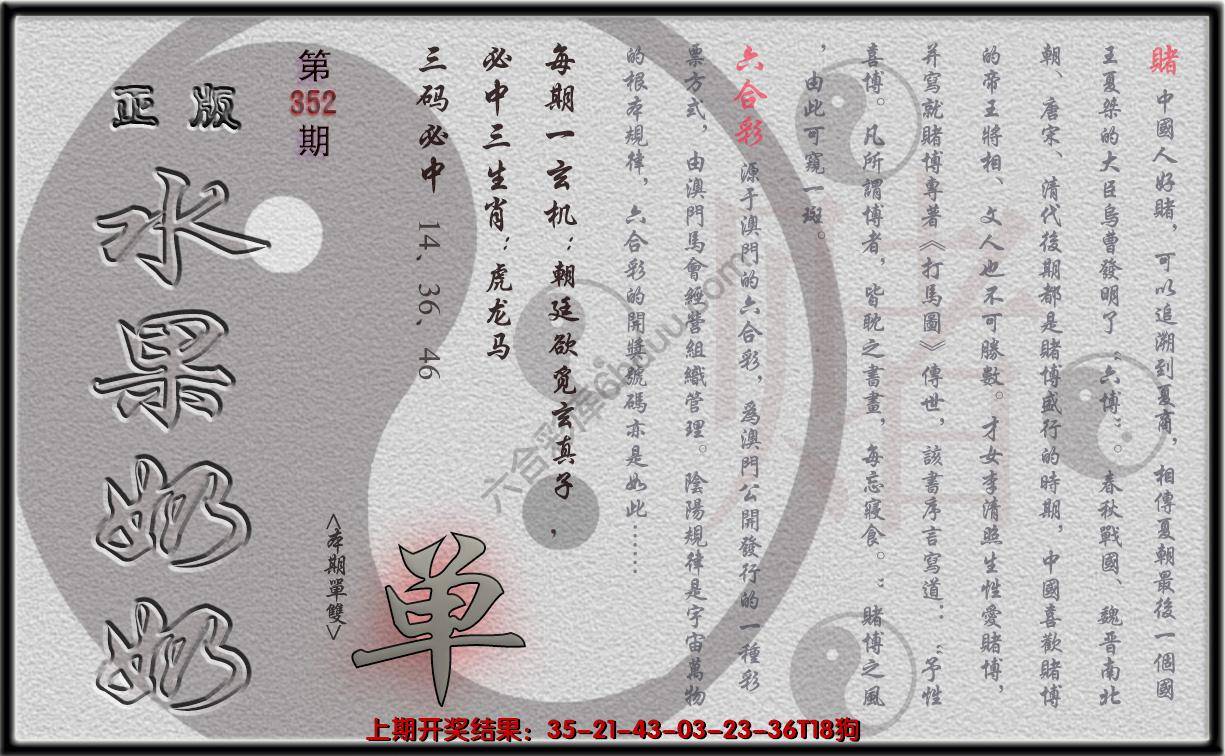 賭 中國人好賭，可以追溯到夏商，相傳夏朝最後一個國
王夏桀的大臣烏曹發明了“六博”。春秋戰國、魏晉南北
朝、唐宋、清代後期都是賭博盛行的時期，中國喜歡賭博
的帝王將相、文人也不可勝數。才女李清照生性愛賭博，
并寫就賭博專著《打馬圖》傳世，該書序言寫道：“予性
喜博。凡所謂博者，皆耽之書畫，每忘寢食。”賭博之風
，由此可窺一斑。
六合彩 源于澳門的六合彩，爲澳門公開發行的一種彩
票方式，由澳門馬會經營組織管理。陰陽規律是宇宙萬物
的根本規律，六合彩的開獎號碼亦是如此……
每期一玄机：朝廷欲觅玄真子，
必中三生肖：虎龙马
三码必中 14、36、46
第
352
期
正版
水果奶奶
<本期單雙>
单
上期开奖结果：35-21-43-03-23-36T18狗